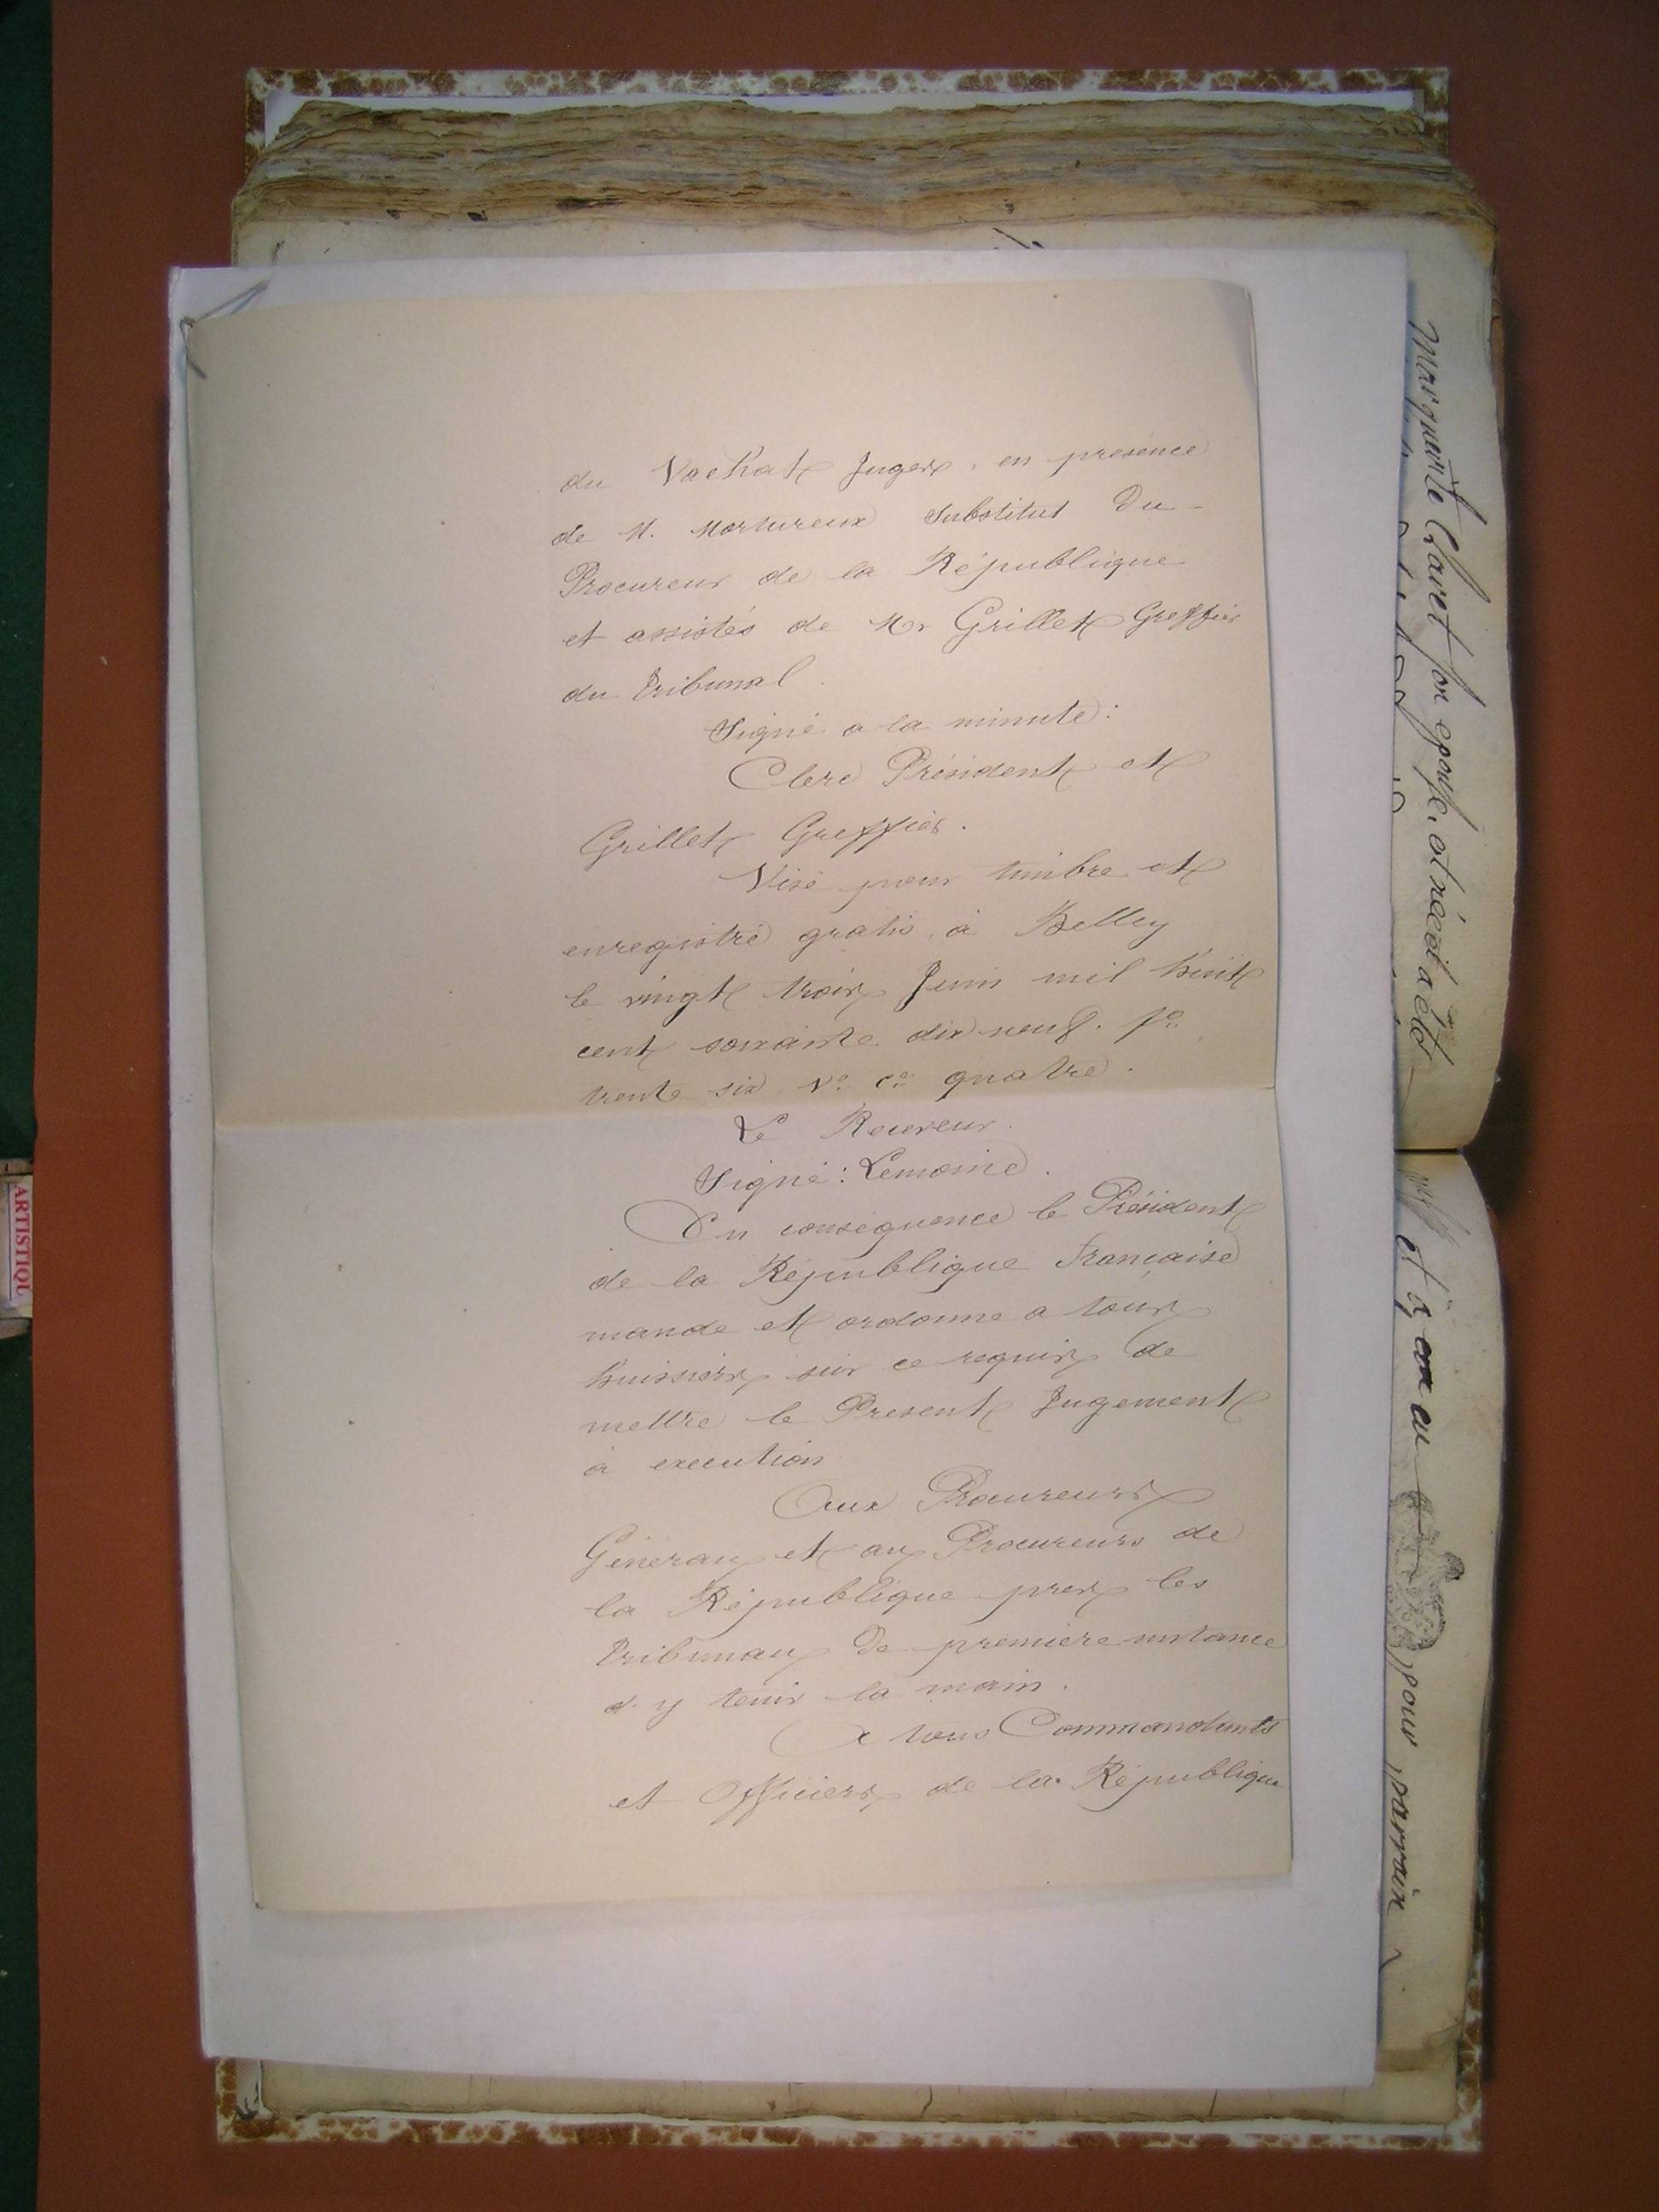 du Vachat Juges, en présence
de M. Martureux Substitut Du
Procureur de la République
et assistés de Mr Grillet Greffier
du Tribunal.
Signé a la minute:
Clerc Président et
Grillet Greffier.
Visé pour timbre et
enregistré gratis, à Belley
le vingt trois Juin mil huit
cent soixante dix neuf. fo
trente six Vo Co quatre.
Le Receveur.
Signé: Lemoine.
En conséquence le Président
de la République Française
mande et ordonne a tous
huissiers, sur ce requis de
mettre le Présent Jugement
à execution
Aux Procureurs
Généraux et aux Procureurs de
la République pres les
Tribunaux De premiere instance
d'y tenir la main.
A tous Commandants
et Officiers de la République
marguerite son epouse, est née et a été
et à eu pour parrain
ARTISTIQU